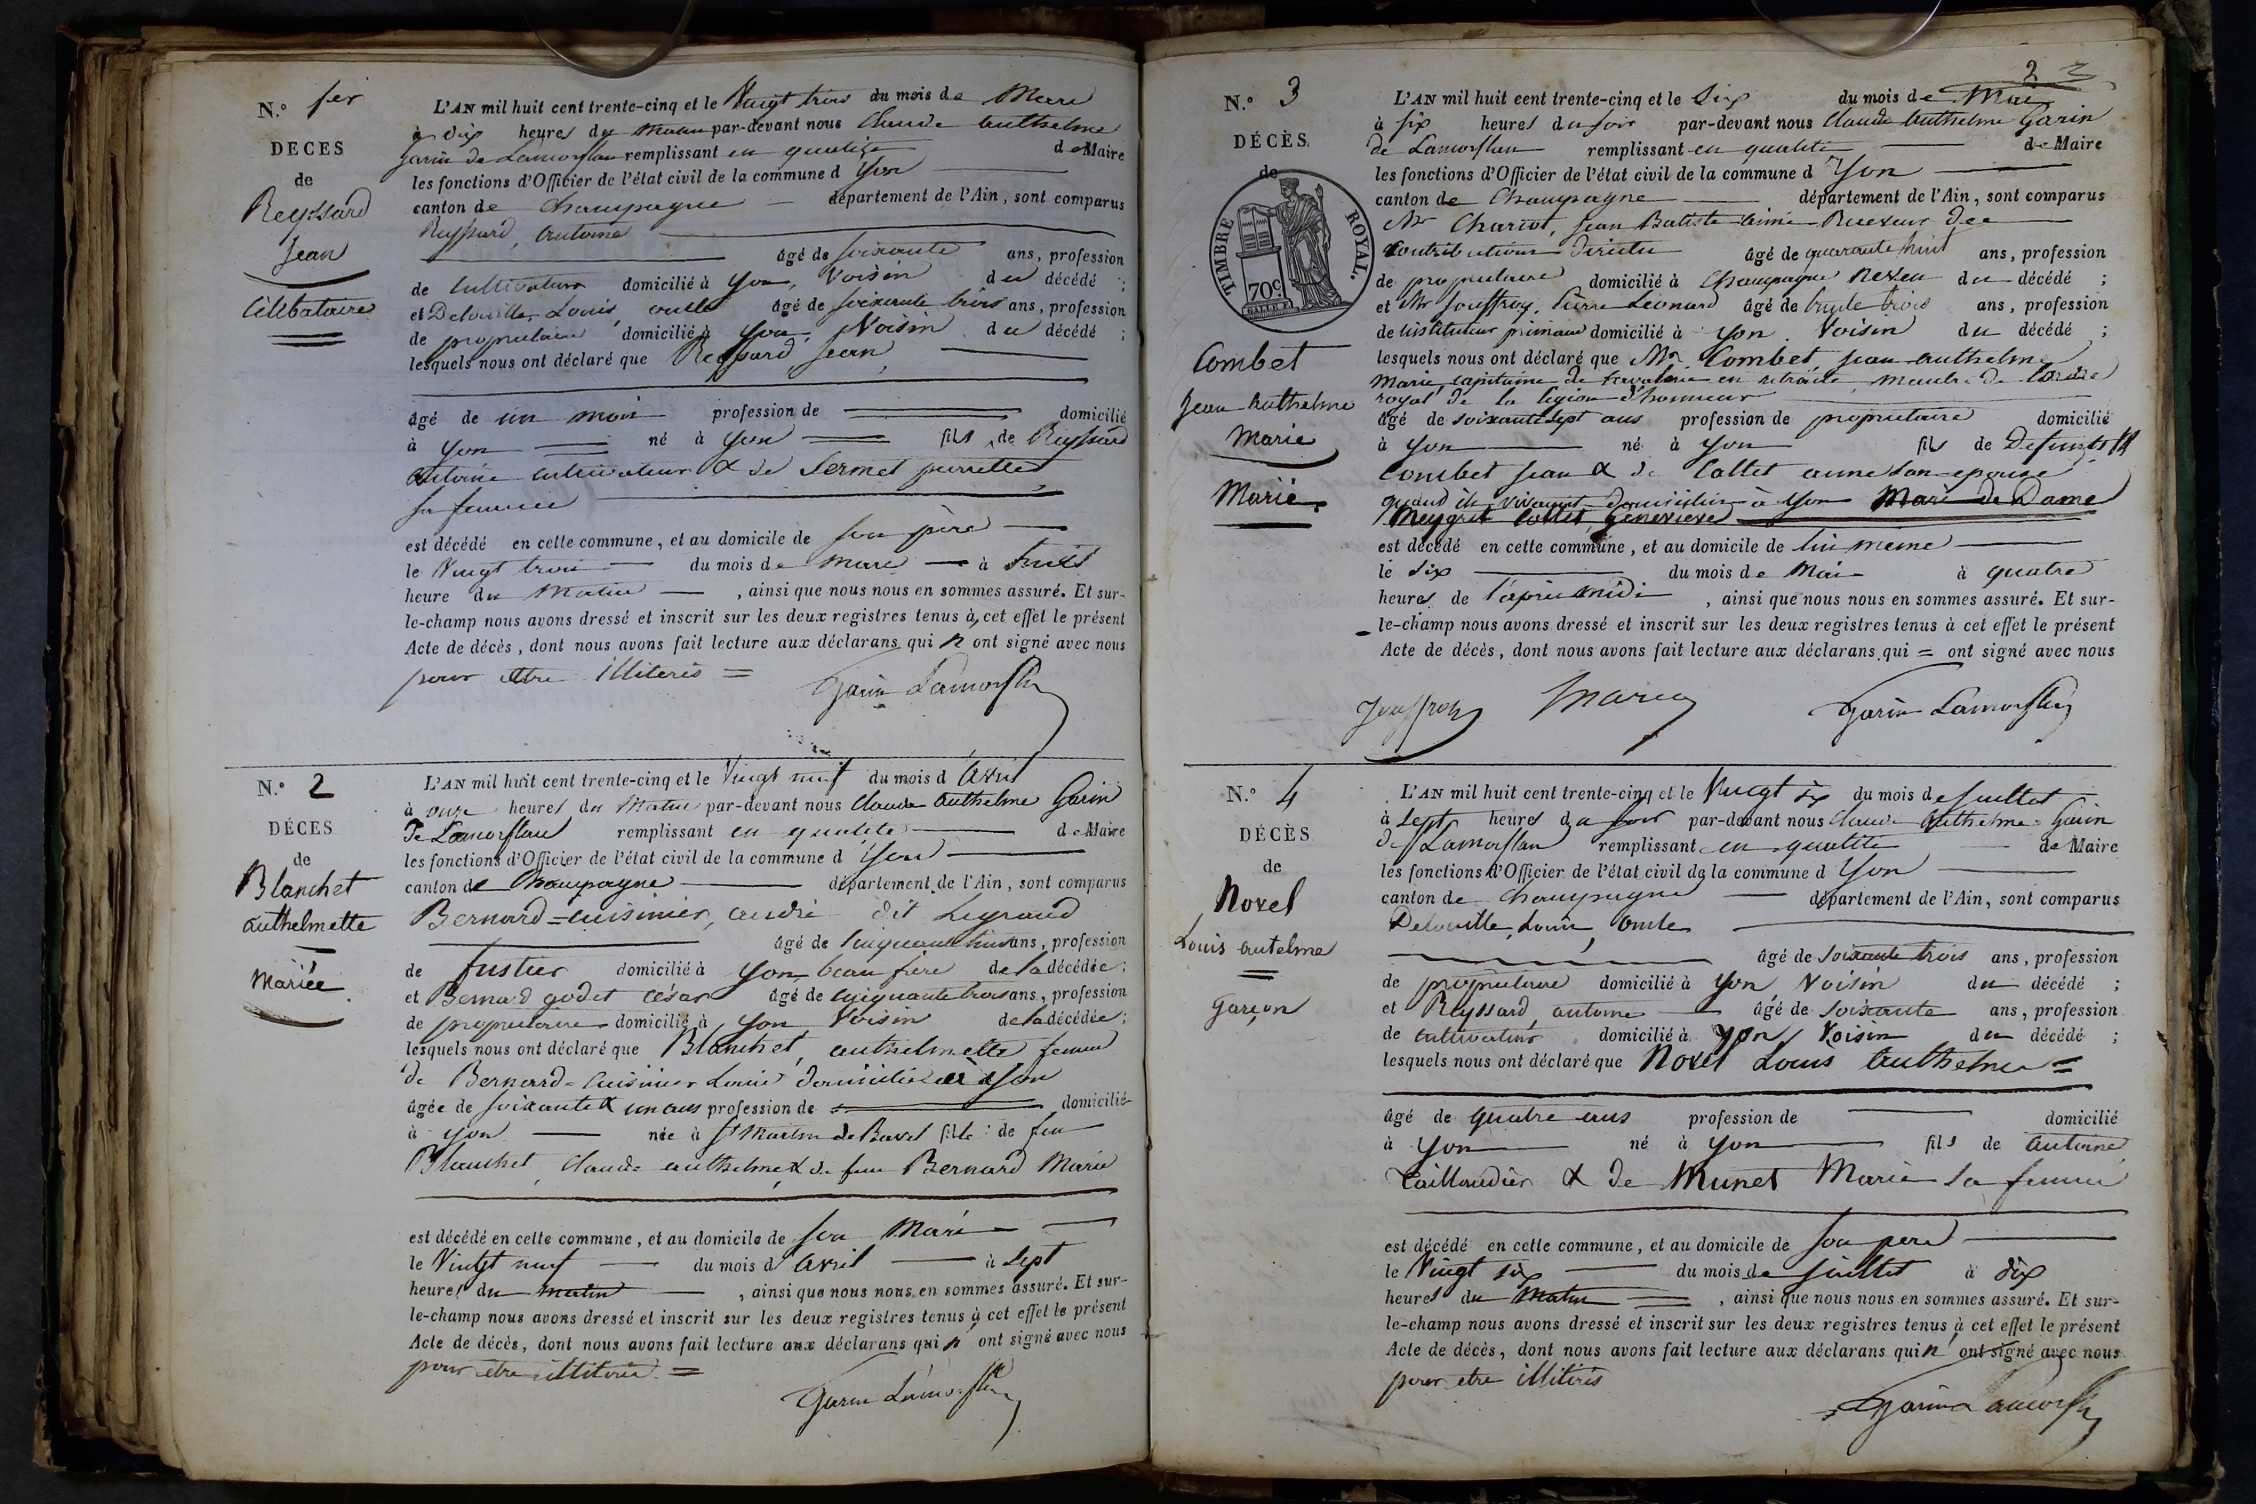 N.º 1er
DECES
de
Reyssard
Jean
Célibataire
L'AN mil huit cent trente-cinq et le Vingt trois du mois de Mars
à dix heures du matin par-devant nous Claude Anthelme
Garin de Lamorflan remplissant en qualité de Maire
les fonctions d'Officier de l'état civil de la commune d Yon
canton de Champagne département de l'Ain, sont comparus
Reyssard, Antoine
âgé de soixante ans, profession
de cultivateur domicilié à Yon, Voisin du décédé ;
et Delouille, Louis, âgé de soixante trois ans, profession
de propriétaire domicilié à Yon, Voisin du décédé ;
lesquels nous ont déclaré que Reyssard Jean,
âgé de un mois profession de domicilié
à Yon né à Yon fils de Reyssard
antoine cultivateur & de Sermet perrette
sa femme
est décédé en cette commune, et au domicile de son père
le Vingt trois du mois de Mars à
heure du Matin, ainsi que nous nous en sommes assuré. Et sur-
le-champ nous avons dressé et inscrit sur les deux registres tenus à cet effet le présent
Acte de décès, dont nous avons fait lecture aux déclarans qui n ont signé avec nous
pour etre illiterés =
Garin Lamorflan
N.º 2
DÉCES
de
Blanchet
anthelmette
Mariée
L'AN mil huit cent trente-cinq et le Vingt neuf du mois d Avril
à onze heures du Matin par-devant nous Claude Anthelme Garin
de Lamorflan remplissant en qualité de Maire
les fonctions d'Officier de l'état civil de la commune d Yon
canton de Champagne département de l'Ain, sont comparus
Bernard=cuisinier, andré dit Legrand
âgé de ans, profession
de fustier domicilié à Yon, beau frère de la décédée ;
et Bernard godet César âgé de cinquante trois ans, profession
de propriétaire domicilié à Yon, Voisin de la décédée ;
lesquels nous ont déclaré que Blanchet, anthelmette femme
de Bernard=Cuisinier Louis domiciliée à Yon
âgée de soixante & un ans profession de domicilié
à Yon née à St Martin de Bavel fille de feu
Blanchet, Claude anthelme & de feu Bernard Marie
est décédé en cette commune, et au domicile de son Mari
le Vingt neuf du mois d Avril à sept
heures du matin, ainsi que nous nous en sommes assuré. Et sur-
le-champ nous avons dressé et inscrit sur les deux registres tenus à cet effet le présent
Acte de décès, dont nous avons fait lecture aux déclarans qui n' ont signé avec nous
pour etre illiterés =
Garin Lamorflan
2
N.º 3
DÉCÈS
de
TIMBRE ROYAL.
70c
Combet
Jean Anthelme
Marie
Marié
L'AN mil huit cent trente-cinq et le Six du mois de Mai
à six heures du soir par-devant nous Claude Anthelme Garin
de Lamorflan remplissant en qualité de Maire
les fonctions d'Officier de l'état civil de la commune d Yon
canton de Champagne département de l'Ain, sont comparus
Mr Jean Batiste aimé Receveur des
Contributions Directes âgé de quarante huit ans, profession
de propriétaire domicilié à Champagne Neveu du décédé ;
et Mr Jouffroy, Pierre Leonard âgé de trente trois ans, profession
de instituteur primaire domicilié à Yon Voisin du décédé ;
lesquels nous ont déclaré que Mr. Combet jean anthelme
Marie, capitaine de en retraite, membre de l'ordre
royal de la legion d'honneur
âgé de soixante sept ans profession de propriétaire domicilié
à Yon né à Yon fils de Defunts
Combet Jean & de Collet anne son epouse
quand ils vivaient domiciliés à Yon Mari de Dame
Meygret Collet, Genevieve
est décédé en cette commune, et au domicile de lui meme
le Six du mois de Mai à quatre
heures de l'après midi, ainsi que nous nous en sommes assuré. Et sur-
le-champ nous avons dressé et inscrit sur les deux registres tenus à cet effet le présent
Acte de décès, dont nous avons fait lecture aux déclarans qui = ont signé avec nous
Jouffroy Garin Lamorflan
N.º 4
DÉCÈS
de
Novel
Louis antelme
garçon
L'AN mil huit cent trente-cinq et le Vingt six du mois de Juillet
à Sept heures du soir par-devant nous Claude Anthelme Garin
de Lamorflan remplissant en qualité de Maire
les fonctions d'Officier de l'état civil de la commune d Yon
canton de Champagne département de l'Ain, sont comparus
Delouille, Louis,
âgé de soixante trois ans, profession
de propriétaire domicilié à Yon Voisin du décédé ;
et Reyssard, antoine âgé de soixante ans, profession
de cultivateur domicilié à Yon, Voisin du décédé ;
lesquels nous ont déclaré que Novel Louis Anthelme =
âgé de quatre ans profession de domicilié
à Yon né à Yon fils de antoine
Taillandier & de Munet Marie sa femme
est décédé en cette commune, et au domicile de son pere
le Vingt six du mois de Juillet à dix
heures du Matin, ainsi que nous nous en sommes assuré. Et sur-
le-champ nous avons dressé et inscrit sur les deux registres tenus à cet effet le présent
Acte de décès, dont nous avons fait lecture aux déclarans qui n' ont signé avec nous
pour etre illiterés
Garin Lamorflan